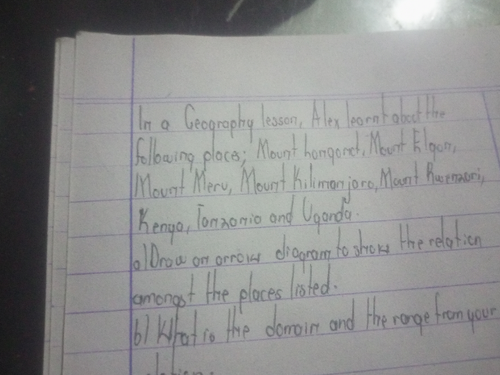 In a Geography lesson, Alex learnt about the
following places; Mount Longonot, Mount Elgon,
Mount Meru, Mount Kilimanjaro, Mount Rwenzori,
Kenya, Tanzania and Uganda.
a) Draw an arrow diagram to show the relation
amongst the places listed.
b) What is the domain and the range from your